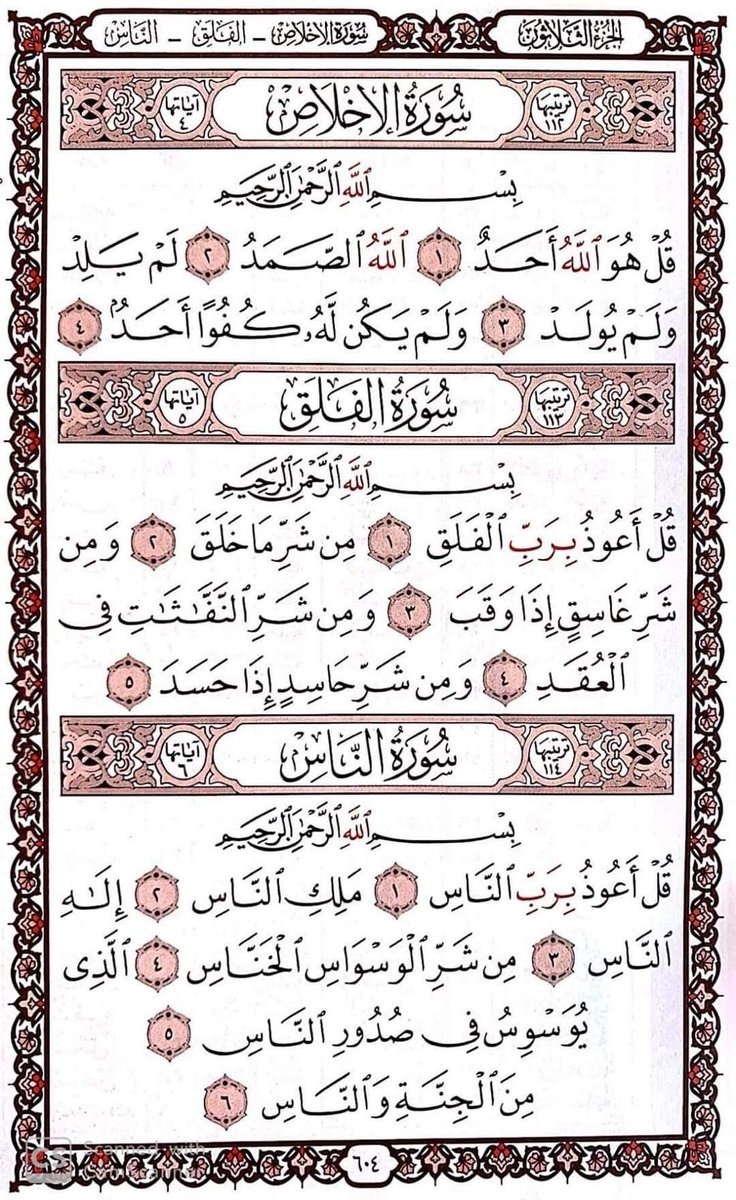 الجزء الثلاثون
سورة الإخلاص - الفلق - الناس
ترتيبها ١١٢ سُورَةُ الإِخْلَاصِ آياتها ٤
بِسْمِ ٱللَّهِ ٱلرَّحْمَٰنِ ٱلرَّحِيمِ
قُلْ هُوَ ٱللَّهُ أَحَدٌ ١ ٱللَّهُ ٱلصَّمَدُ ٢ لَمْ يَلِدْ
وَلَمْ يُولَدْ ٣ وَلَمْ يَكُن لَّهُۥ كُفُوًا أَحَدٌۢ ٤
ترتيبها ١١٣ سُورَةُ الفَلَقِ آياتها ٥
بِسْمِ ٱللَّهِ ٱلرَّحْمَٰنِ ٱلرَّحِيمِ
قُلْ أَعُوذُ بِرَبِّ ٱلْفَلَقِ ١ مِن شَرِّ مَا خَلَقَ ٢ وَمِن
شَرِّ غَاسِقٍ إِذَا وَقَبَ ٣ وَمِن شَرِّ ٱلنَّفَّٰثَٰتِ فِى
ٱلْعُقَدِ ٤ وَمِن شَرِّ حَاسِدٍ إِذَا حَسَدَ ٥
ترتيبها ١١٤ سُورَةُ النَّاسِ آياتها ٦
بِسْمِ ٱللَّهِ ٱلرَّحْمَٰنِ ٱلرَّحِيمِ
قُلْ أَعُوذُ بِرَبِّ ٱلنَّاسِ ١ مَلِكِ ٱلنَّاسِ ٢ إِلَٰهِ
ٱلنَّاسِ ٣ مِن شَرِّ ٱلْوَسْوَاسِ ٱلْخَنَّاسِ ٤ ٱلَّذِى
يُوَسْوِسُ فِى صُدُورِ ٱلنَّاسِ ٥
مِنَ ٱلْجِنَّةِ وَٱلنَّاسِ ٦
٦٠٤
CS Scanned with
CamScanner